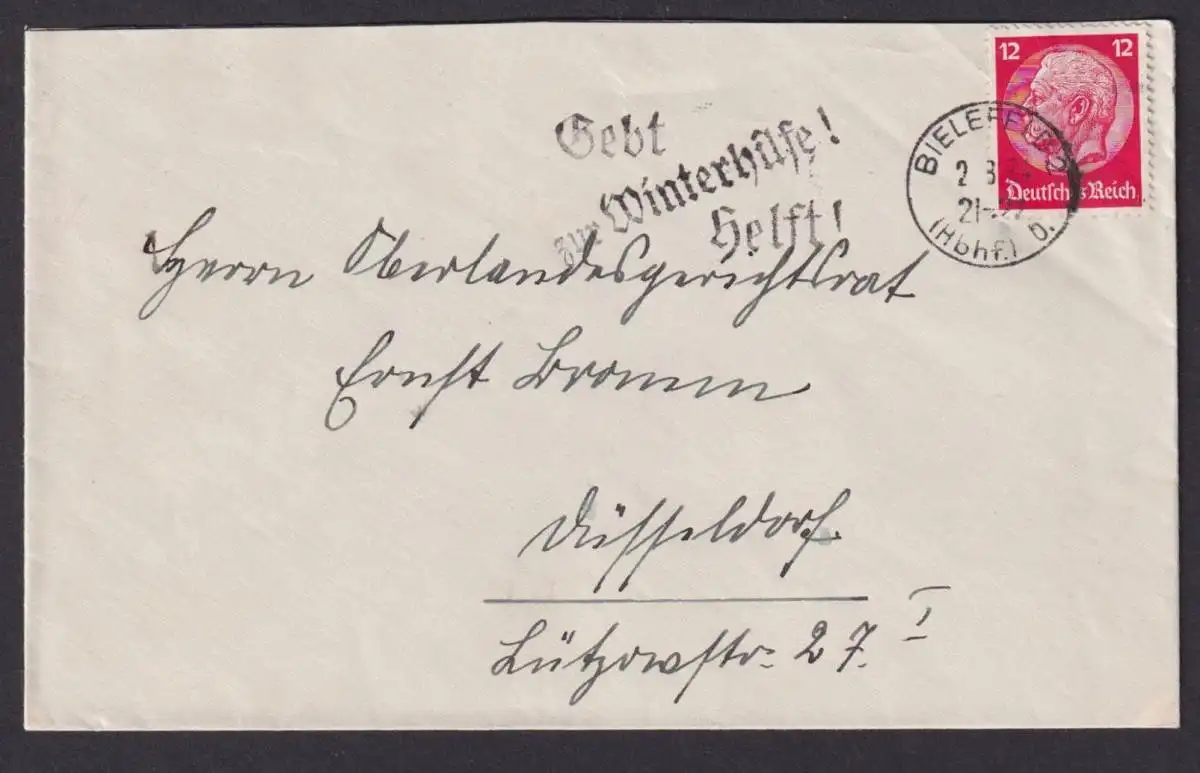 12 12
Deutsches Reich
BIELEFELD 2
21-22
(Hbhf.) b.
Gebt
zur Winterhilfe!
Helft!
Herrn Oberlandesgerichtsrat
Ernst
Düsseldorf.
Lützowstr. 27. I